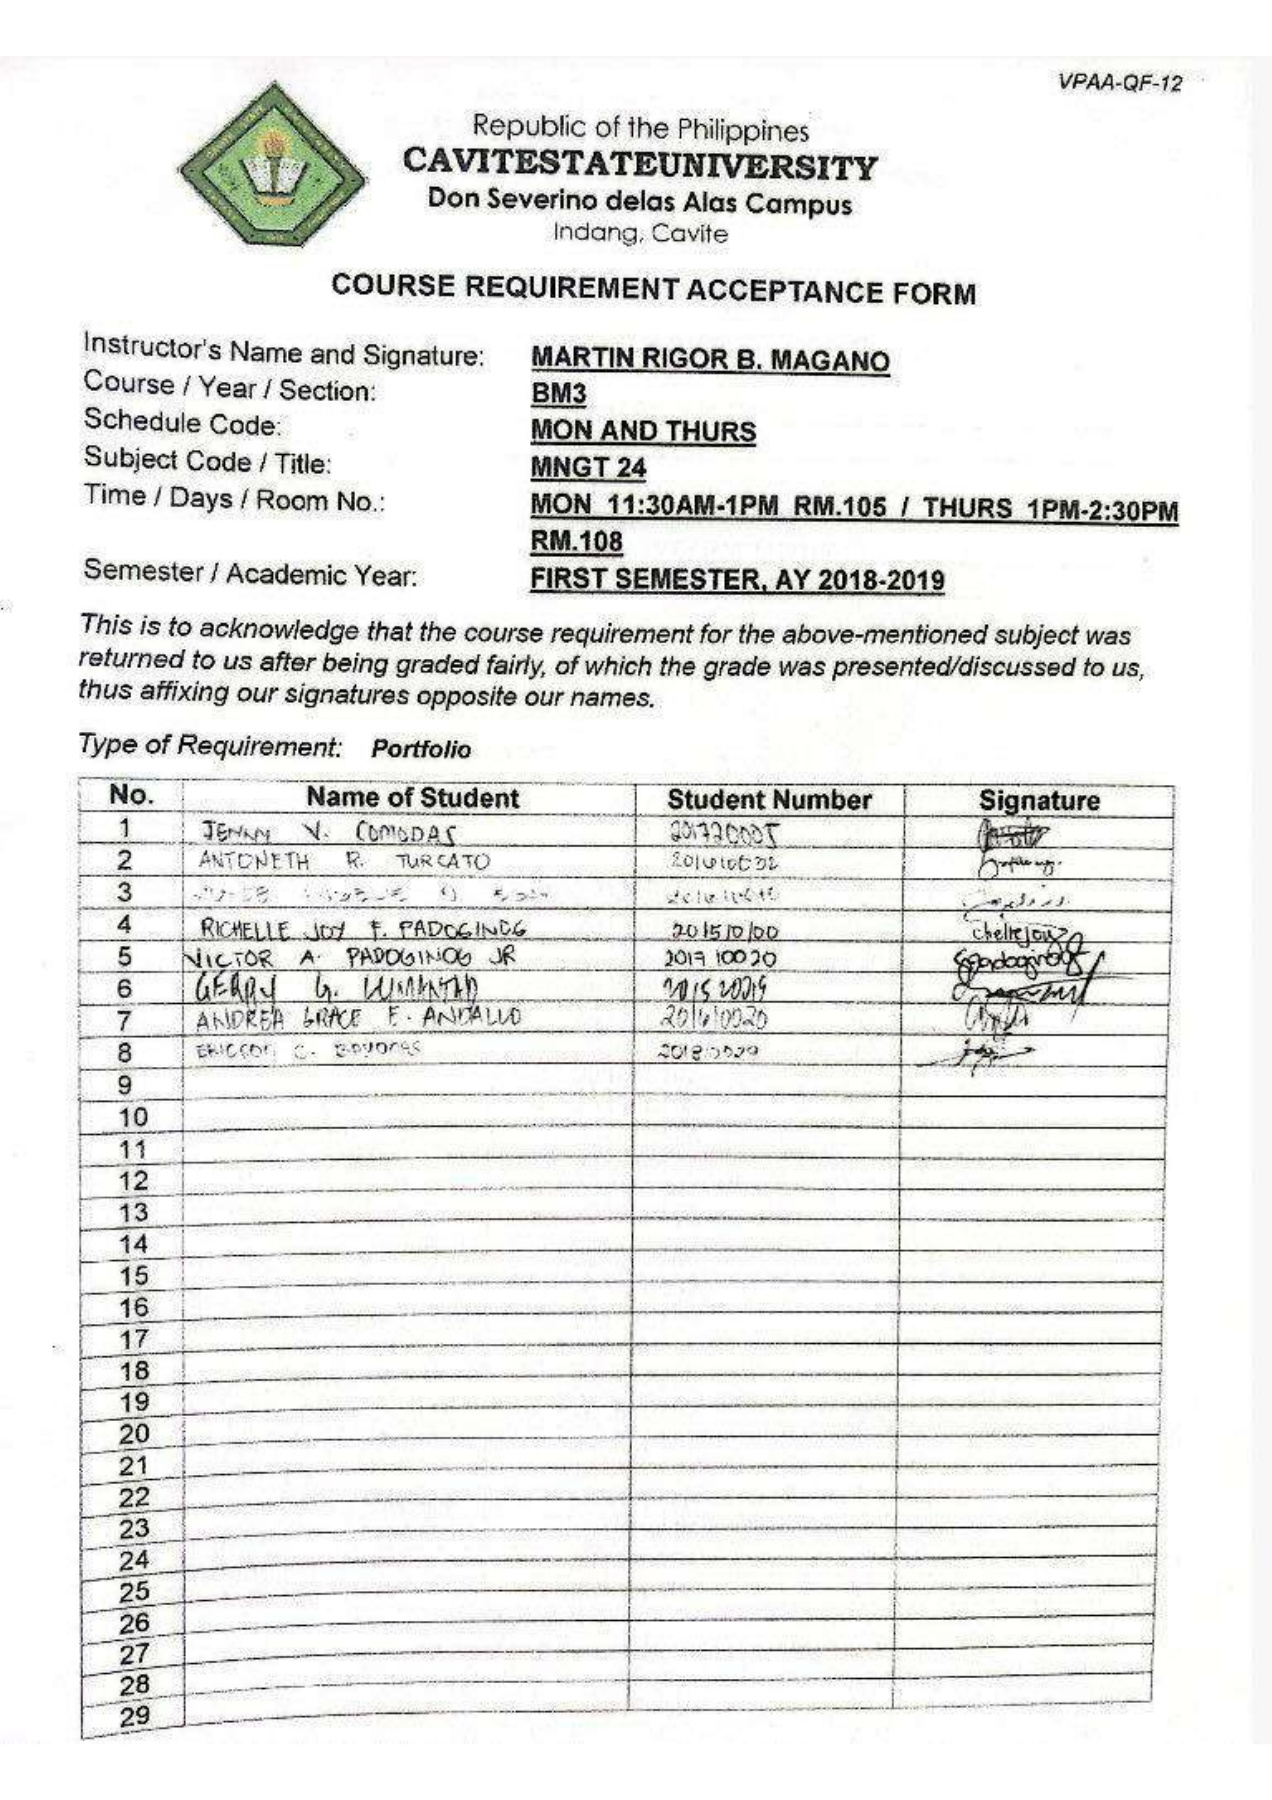 VPAA-QF-12
Republic of the Philippines
CAVITESTATEUNIVERSITY
Don Severino delas Alas Campus
Indang, Cavite
COURSE REQUIREMENT ACCEPTANCE FORM
Instructor's Name and Signature: MARTIN RIGOR B. MAGANO
Course / Year / Section: BM3
Schedule Code: MON AND THURS
Subject Code / Title: MNGT 24
Time / Days / Room No.: MON 11:30AM-1PM RM.105 / THURS 1PM-2:30PM
RM.108
Semester / Academic Year: FIRST SEMESTER, AY 2018-2019
This is to acknowledge that the course requirement for the above-mentioned subject was
returned to us after being graded fairly, of which the grade was presented/discussed to us,
thus affixing our signatures opposite our names.
Type of Requirement: Portfolio
No. Name of Student Student Number Signature
1 JENNY V. COMODAS
2 ANTONETH R. TURCATO
3
4 RICHELLE JOY F. PADOGINOG 201510100
5 VICTOR A. PADOGINOG JR 201710020
6 GERRY G. 201520219
7 ANDREA GRACE E. ANDALLO 201610020
8 C.
9
10
11
12
13
14
15
16
17
18
19
20
21
22
23
24
25
26
27
28
29